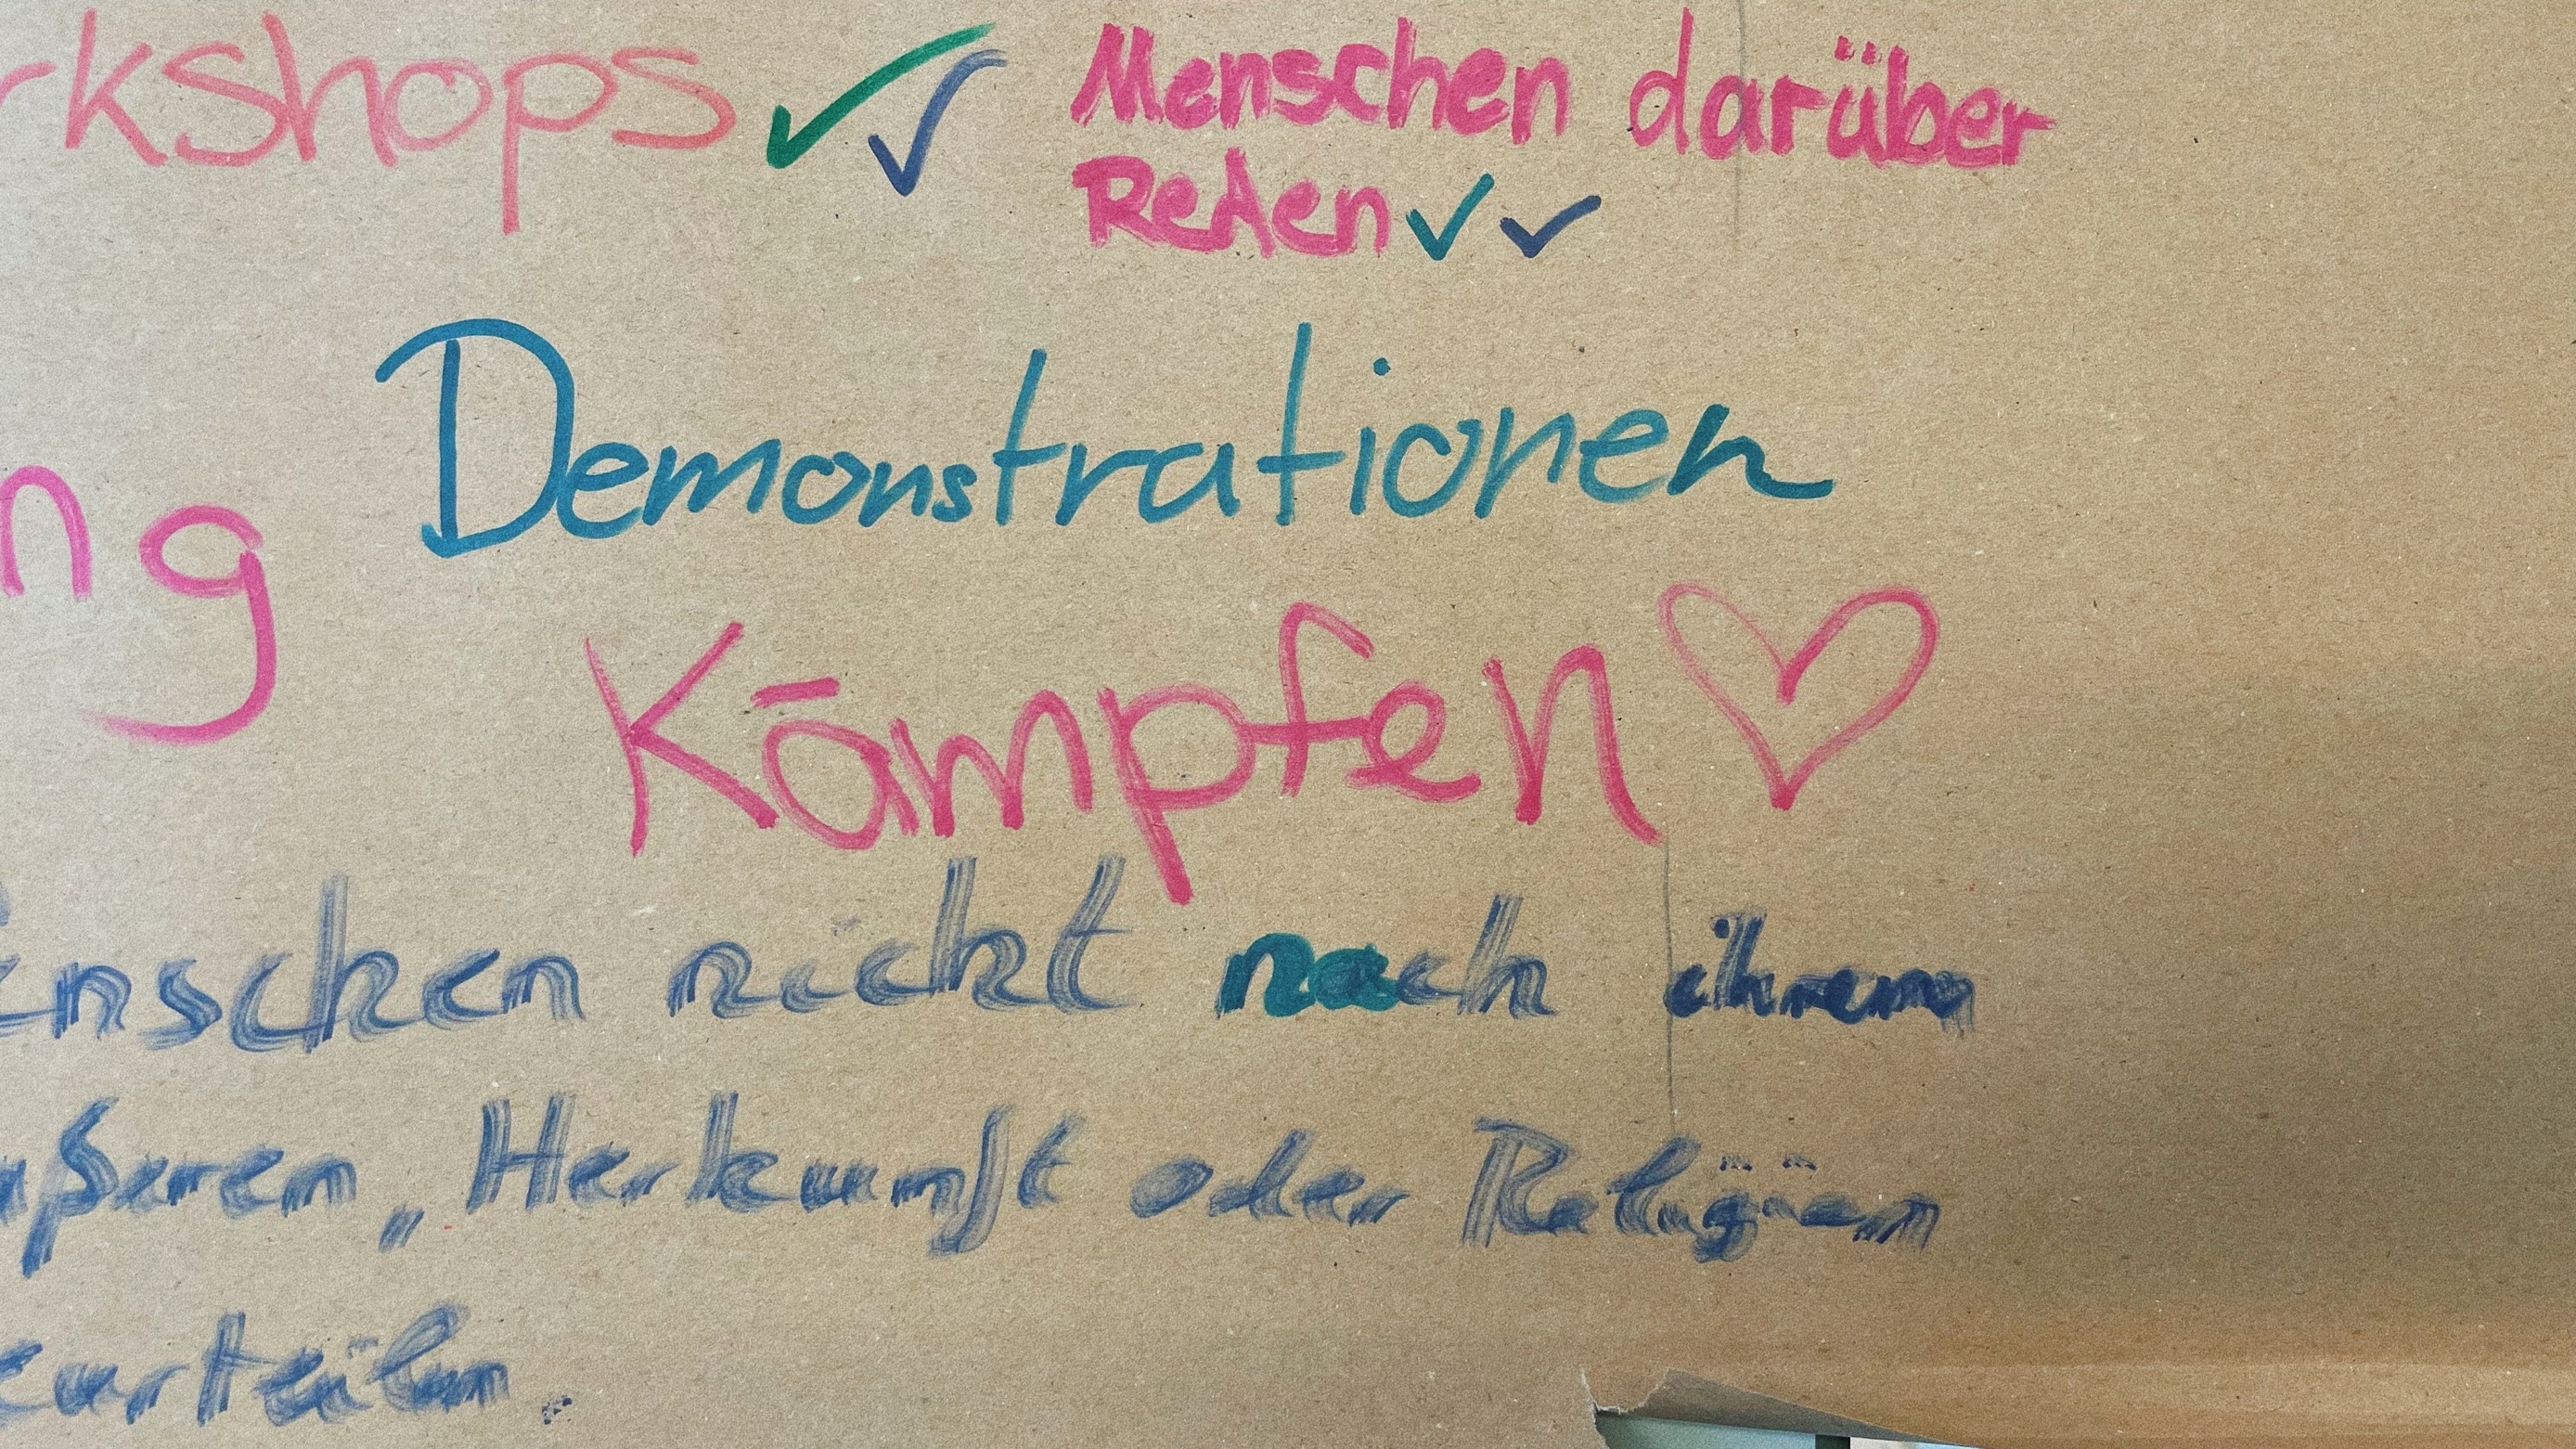 rkshops ✓✓
Menschen darüber
Reden ✓✓
Demonstrationen
ng
Kämpfen ♡
enschen nicht nach ihrem
ußeren, Herkunft oder Religion
eurteiln.